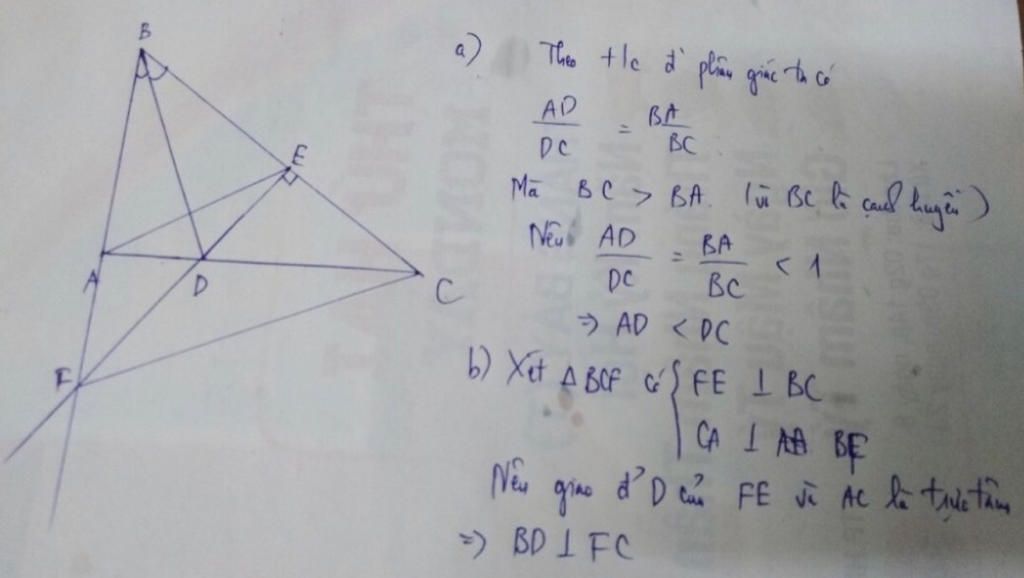 B
E
A
D
C
F
a) Theo t/c đ' phân giác ta có
AD/DC = BA/BC
Mà BC > BA. (vì BC là cạnh huyền)
Nên AD/DC = BA/BC < 1
⇒ AD < DC
b) Xét ΔBCF có { FE ⊥ BC
CA ⊥ BF
Nên giao đ' D của FE và AC là trực tâm
⇒ BD ⊥ FC